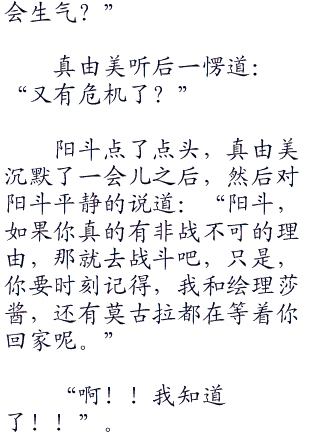 会生气？”
真由美听后一愣道：
“又有危机了？”
阳斗点了点头，真由美
沉默了一会儿之后，然后对
阳斗平静的说道：“阳斗，
如果你真的有非战不可的理
由，那就去战斗吧，只是，
你要时刻记得，我和绘理莎
酱，还有莫古拉都在等着你
回家呢。”
“啊！！我知道
了！！”。